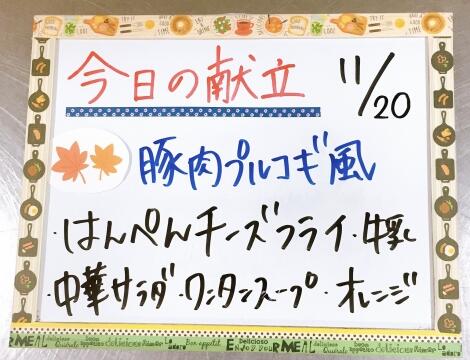 今日の献立 11/20
豚肉プルコギ風
・はんぺんチーズフライ・牛乳
・中華サラダ・ワンタンスープ・オレンジ